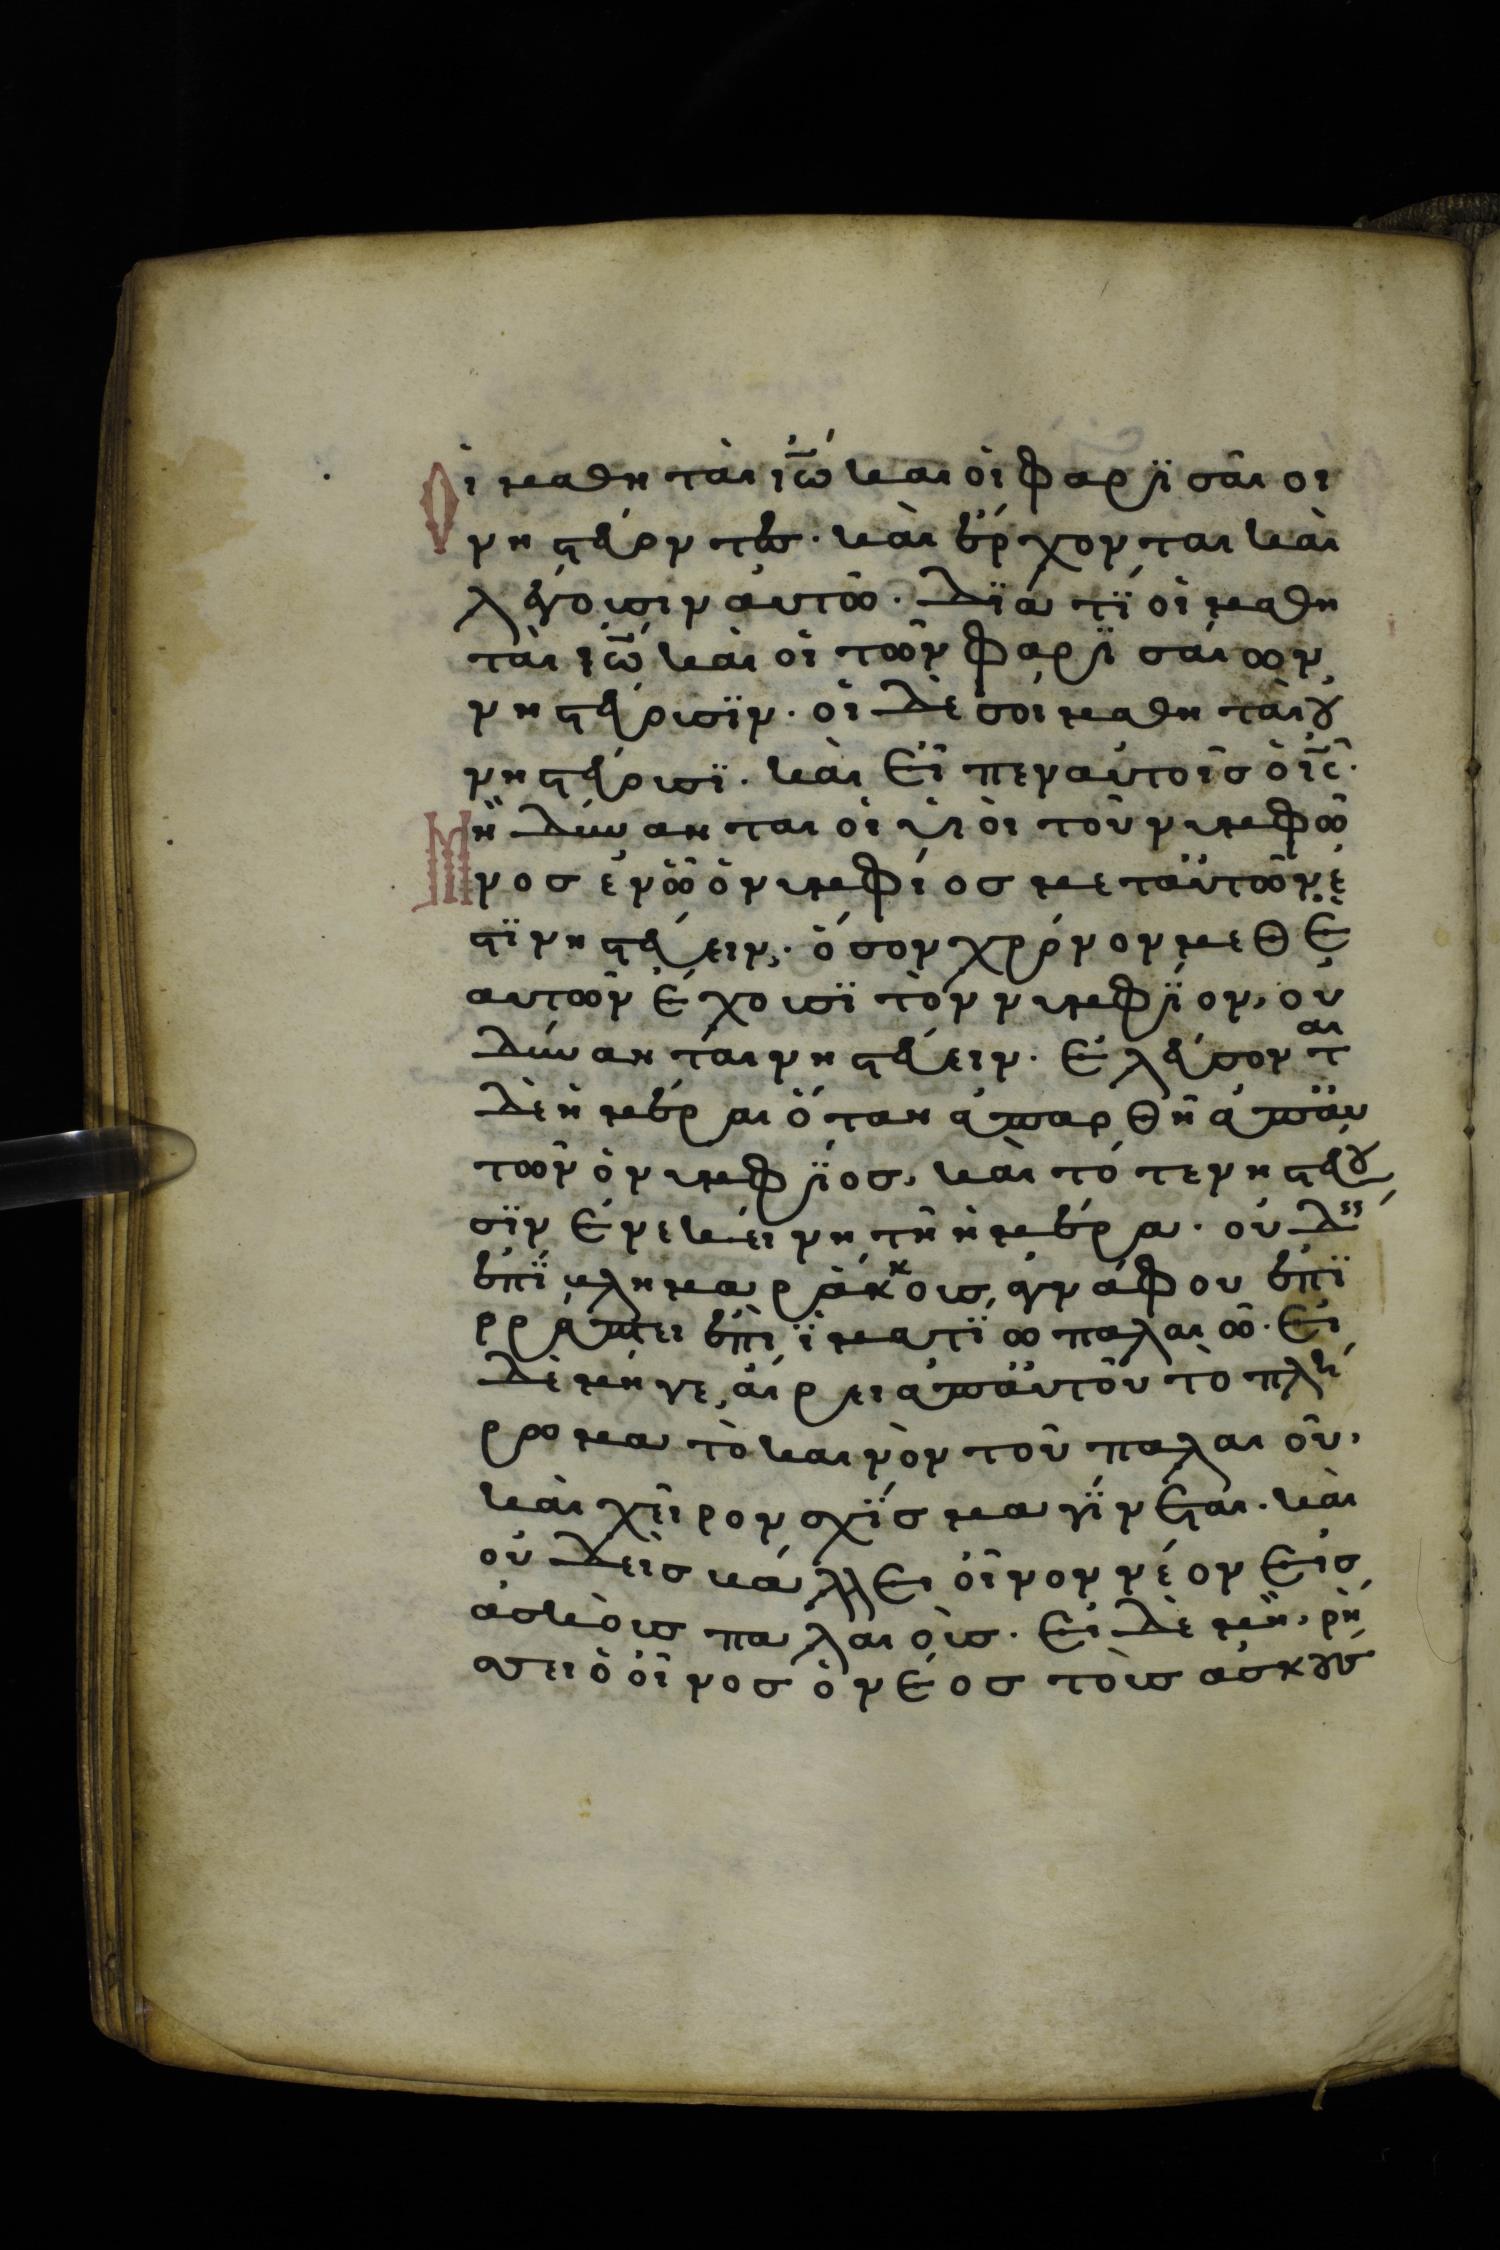 Οἱ μαθηταὶ ἰω̅ καὶ οἱ φαρϊσαῖοι
νηστέυοντες· καὶ ἔρχονται καὶ
λέγουσιν ἀυτῶ· Δϊά τΐ οἱ μαθη
ταὶ ἰω̅ καὶ οἱ τῶν Φαρϊσάιων
νηστέυουσϊν· οἱ δὲ σοὶ μαθηταὶ ȣ́
νηστέυουσϊ· καὶ εἶπεν αὐτοῖς ὁ ις̅·
Μὴ δύνανται οἱ υἱοὶ τοῦ νυμφῶ
νος ἐν ὧ ὁ νυμφίος μετ' αὐτῶν ἐ
στϊ νηστέυειν· ὅσον χρόνον μεθ ἑ
αυτῶν ἔχουσϊ τὸν νυμφΐον, οὐ
δύνανται νηστέυειν· ἐλέυσονται
δὲ ἡμέραι ὅταν ἀπαρθῆ ἀπ' αυ
τῶν ὁ νυμφΐος, καὶ τότε νηστέυȣ
σϊν ἐν ἐκείνη τῆ ἡμέρα· οὐδεὶς
ἐπΐβλημα ῥάκκους ἀγνάφου ἐπϊ
ρράπτει ἐπὶ ἱματϊω παλαιῶ· Εἰ
δὲ μήγε, ἄιρει ἀπ' αὐτοῦ τὸ πλή
ρομα τὸ καινὸν τοῦ παλαιοῦ,
καὶ χεῖρον σχΐσμα γΐνεται· καὶ
οὐδεὶς βάλλει οἶνον νέον εἰς
ἀσκοὺς παλαιοὺς· Εἰ δὲ μὴ, ῥή
σσει ὁ οἶνος ὁ νέος τοὺς ἀσκȣς